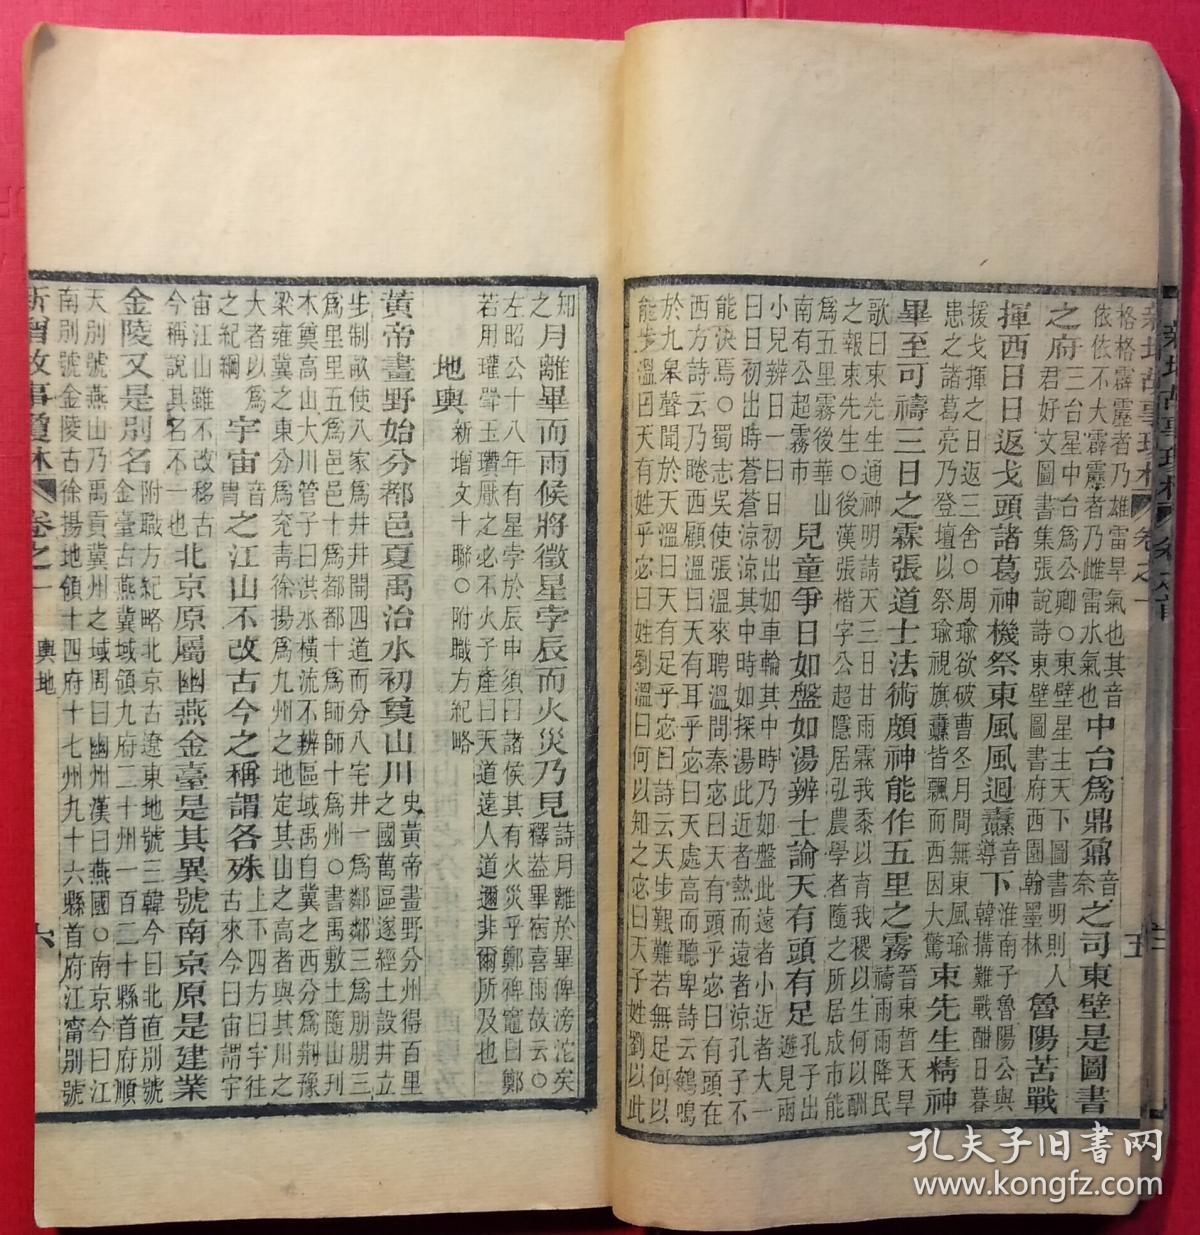 格格霹靂者乃雄雷旱氣也其音
依依不大霹靂者乃雌雷水氣也
中台爲鼎鼐音奈之司東壁是圖書
之府三台星中台爲公卿〇東壁星主天下圖書明則人
君好文圖書集張說詩東壁圖書府西園翰墨林
魯陽苦戰
揮西日日返戈頭諸葛神機祭東風風迴纛音導下淮南子魯陽公與
韓搆難戰酣日暮
援戈揮之日返三舍〇周瑜欲破曹冬月間無東風瑜
患之諸葛亮乃登壇以祭瑜視旗纛皆飄而西因大驚
束先生精神
畢至可禱三日之霖張道士法術頗神能作五里之霧晉束皙天旱
禱雨雨降民
歌曰束先生通神明請天三日甘雨霖我黍以育我稷以生何以酬
之報束先生〇後漢張楷字公超隱居弘農學者隨之所居成市能
爲五里霧後華山
南有公超霧市
兒童爭日如盤如湯辨士論天有頭有足孔子出
遊見兩
小兒辨日一曰日初出如車輪其中時乃如盤此遠者小近者大一
曰日初出時蒼蒼涼涼其中時如探湯此近者熱而遠者涼孔子不
能決焉〇蜀志吳使張溫來聘溫問秦宓曰天有頭乎宓曰有頭在
西方詩云乃睠西顧溫曰天有耳乎宓曰天處高而聽卑詩云鶴鳴
於九臯聲聞於天溫曰天有足乎宓曰詩云天步艱難若無足何以
能步溫曰天有姓乎宓曰姓劉溫曰何以知之宓曰天子姓劉以此
五
知月離畢而雨候將徵星孛辰而火災乃見詩月離於畢俾滂沱矣
之釋益畢宿喜雨故云〇
左昭公十八年有星孛於辰中須曰諸侯其有火災乎鄭裨竈曰鄭
若用瓘斝玉瓚厭之必不火子產曰天道遠人道邇非爾所及也
地輿 新增文十聯〇附職方紀略
黃帝畫野始分都邑夏禹治水初奠山川史黃帝畫野分州得百里
之國萬區遂經土設井立
步制畝使八家爲井井開四道而分八宅井一爲鄰鄰三爲朋朋三
爲里里五爲邑邑十爲都都十爲師師十爲州〇書禹敷土隨山刊
木奠高山大川管子曰洪水橫流不辨區域禹自冀之西分爲荆豫
梁雍冀之東分爲兗青徐揚爲九州之地定其山之高者與其川之
大者以爲
之紀綱
宇宙音胄之江山不改古今之稱謂各殊上下四方曰宇往
古來今曰宙謂宇
宙江山雖不改移古
今稱說其名不一也
北京原屬幽燕金臺是其異號南京原是建業
金陵又是別名附職方紀略北京古遼東地號三韓今曰北直別號
金臺占燕冀域領九府二十州一百二十縣首府順
天別號燕山乃禹貢冀州之域周曰幽州漢曰燕國〇南京今曰江
南別號金陵古徐揚地領十四府十七州九十六縣首府江甯別號
新增故事瓊林 卷之一 輿地 六
孔夫子旧書网
www.kongfz.com